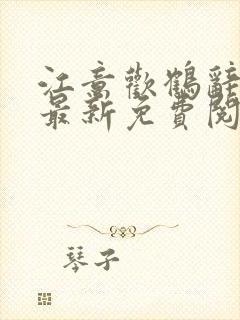 江意歡鶴辭
最新免費閱
琴子